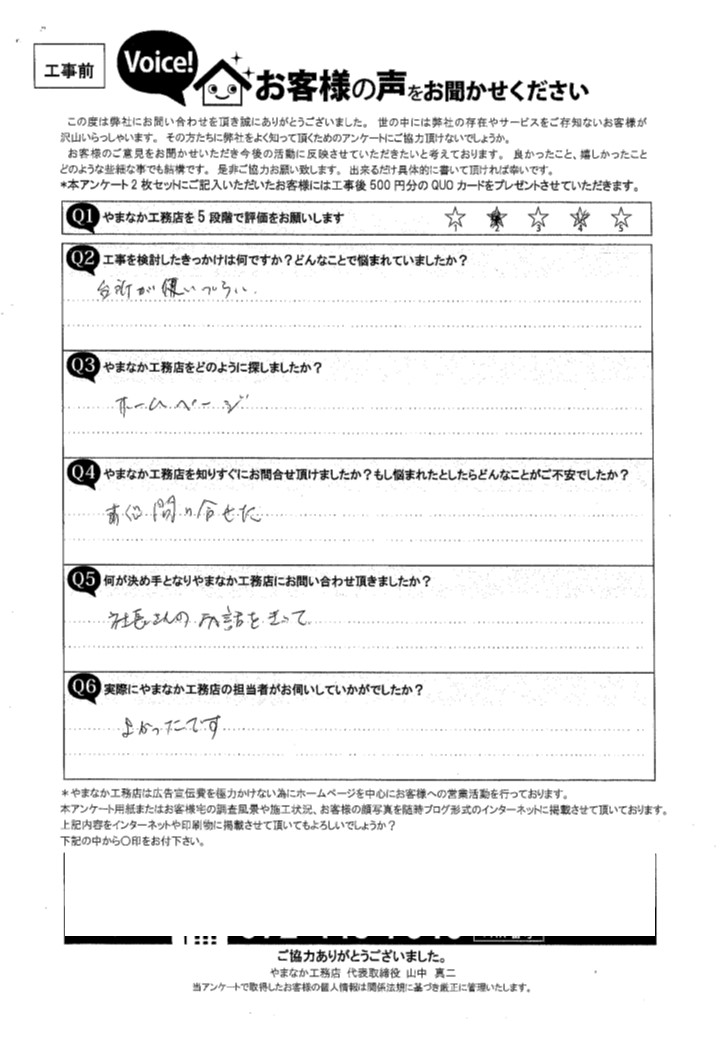 工事前
Voice!
お客様の声をお聞かせください
この度は弊社にお問い合わせを頂き誠にありがとうございました。 世の中には弊社の存在やサービスをご存知ないお客様が
沢山いらっしゃいます。 その方たちに弊社をよく知って頂くためのアンケートにご協力頂けないでしょうか。
お客様のご意見をお聞かせいただき今後の活動に反映させていただきたいと考えております。 良かったこと、嬉しかったこと
どのような些細な事でも結構です。 是非ご協力お願い致します。 出来るだけ具体的に書いて頂ければ幸いです。
*本アンケート2枚セットにご記入いただいたお客様には工事後500円分のQUOカードをプレゼントさせていただきます。
Q1 やまなか工務店を5段階で評価をお願いします
1 2 3 4 5
Q2 工事を検討したきっかけは何ですか?どんなことで悩まれていましたか?
台所が使いづらい.
Q3 やまなか工務店をどのように探しましたか?
ホームページ
Q4 やまなか工務店を知りすぐにお問合せ頂けましたか?もし悩まれたとしたらどんなことがご不安でしたか?
すぐ問い合せた
Q5 何が決め手となりやまなか工務店にお問い合わせ頂きましたか?
社長さんのお話をきいて
Q6 実際にやまなか工務店の担当者がお伺いしていかがでしたか?
よかったです
*やまなか工務店は広告宣伝費を極力かけない為にホームページを中心にお客様への営業活動を行っております。
本アンケート用紙またはお客様宅の調査風景や施工状況、お客様の顔写真を随時ブログ形式のインターネットに掲載させて頂いております。
上記内容をインターネットや印刷物に掲載させて頂いてもよろしいでしょうか?
下記の中から〇印をお付下さい。
ご協力ありがとうございました。
やまなか工務店 代表取締役 山中 真二
当アンケートで取得したお客様の個人情報は関係法規に基づき厳正に管理いたします。